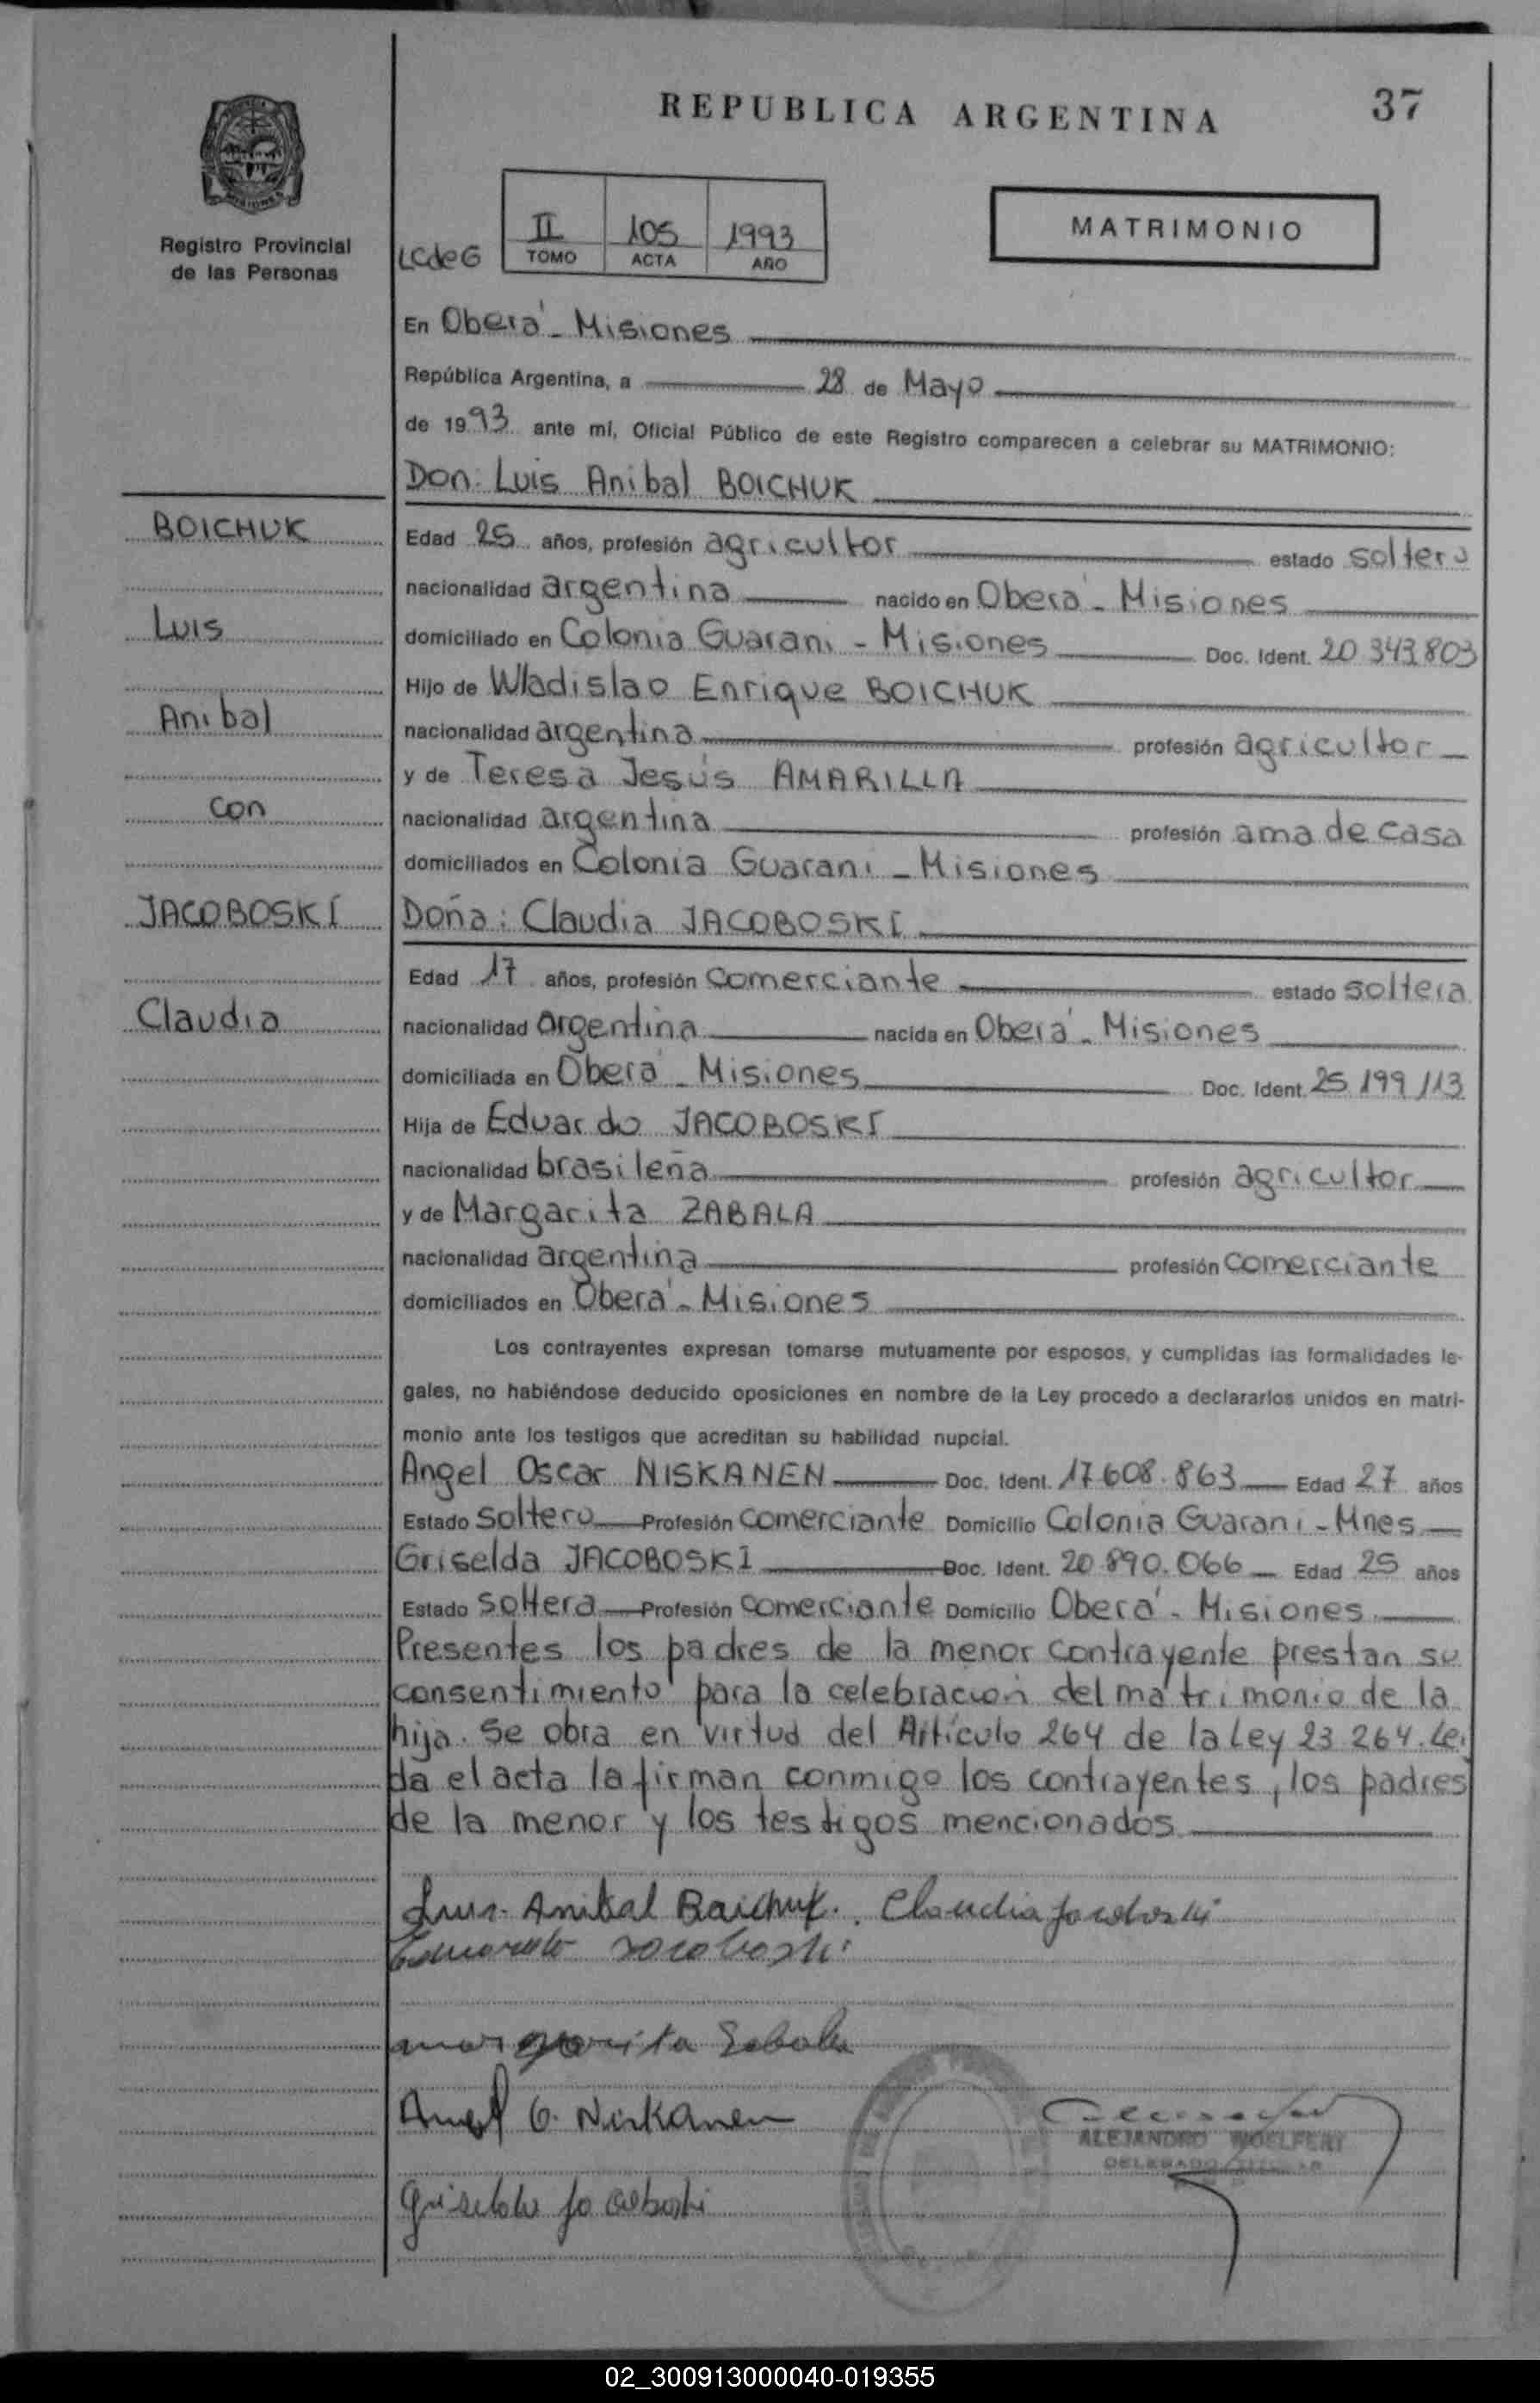 REPUBLICA ARGENTINA
37
Registro Provincial
de las Personas
LCdeG
II 105 1993
TOMO ACTA AÑO
MATRIMONIO
En Oberá - Misiones
República Argentina, a 28 de Mayo
de 1993 ante mí, Oficial Público de este Registro comparecen a celebrar su MATRIMONIO:
Don: Luis Anibal BOICHUK
BOICHUK
Luis
Anibal
con
JACOBOSKI
Claudia
Edad 25 años, profesión agricultor estado soltero
nacionalidad argentina nacido en Oberá - Misiones
domiciliado en Colonia Guarani - Misiones Doc. Ident. 20 343 803
Hijo de Wladislao Enrique BOICHUK
nacionalidad argentina profesión agricultor
y de Teresa Jesús AMARILLA
nacionalidad argentina profesión ama de casa
domiciliados en Colonia Guarani - Misiones
Doña: Claudia JACOBOSKI
Edad 17 años, profesión comerciante estado soltera
nacionalidad argentina nacida en Oberá - Misiones
domiciliada en Oberá - Misiones Doc. Ident. 25 199 113
Hija de Eduardo JACOBOSKI
nacionalidad brasileña profesión agricultor
y de Margarita ZABALA
nacionalidad argentina profesión comerciante
domiciliados en Oberá - Misiones
Los contrayentes expresan tomarse mutuamente por esposos, y cumplidas las formalidades le-
gales, no habiéndose deducido oposiciones en nombre de la Ley procedo a declararlos unidos en matri-
monio ante los testigos que acreditan su habilidad nupcial.
Angel Oscar NISKANEN Doc. Ident. 17 608.863 Edad 27 años
Estado soltero Profesión comerciante Domicilio Colonia Guarani - Mnes
Griselda JACOBOSKI Doc. Ident. 20 890.066 Edad 25 años
Estado soltera Profesión comerciante Domicilio Oberá - Misiones
Presentes los padres de la menor contrayente prestan su
consentimiento para la celebración del matrimonio de la
hija. Se obra en virtud del Artículo 264 de la Ley 23 264. Lei
da el acta la firman conmigo los contrayentes, los padres
de la menor y los testigos mencionados
Luis Anibal Boichuk. Claudia Jacoboski
Eduardo Jacoboski
margarita Zabala
Angel O. Niskanen
ALEJANDRO WOELFERT
DELEGADO TITULAR
Griselda Jacoboski
02_300913000040-019355